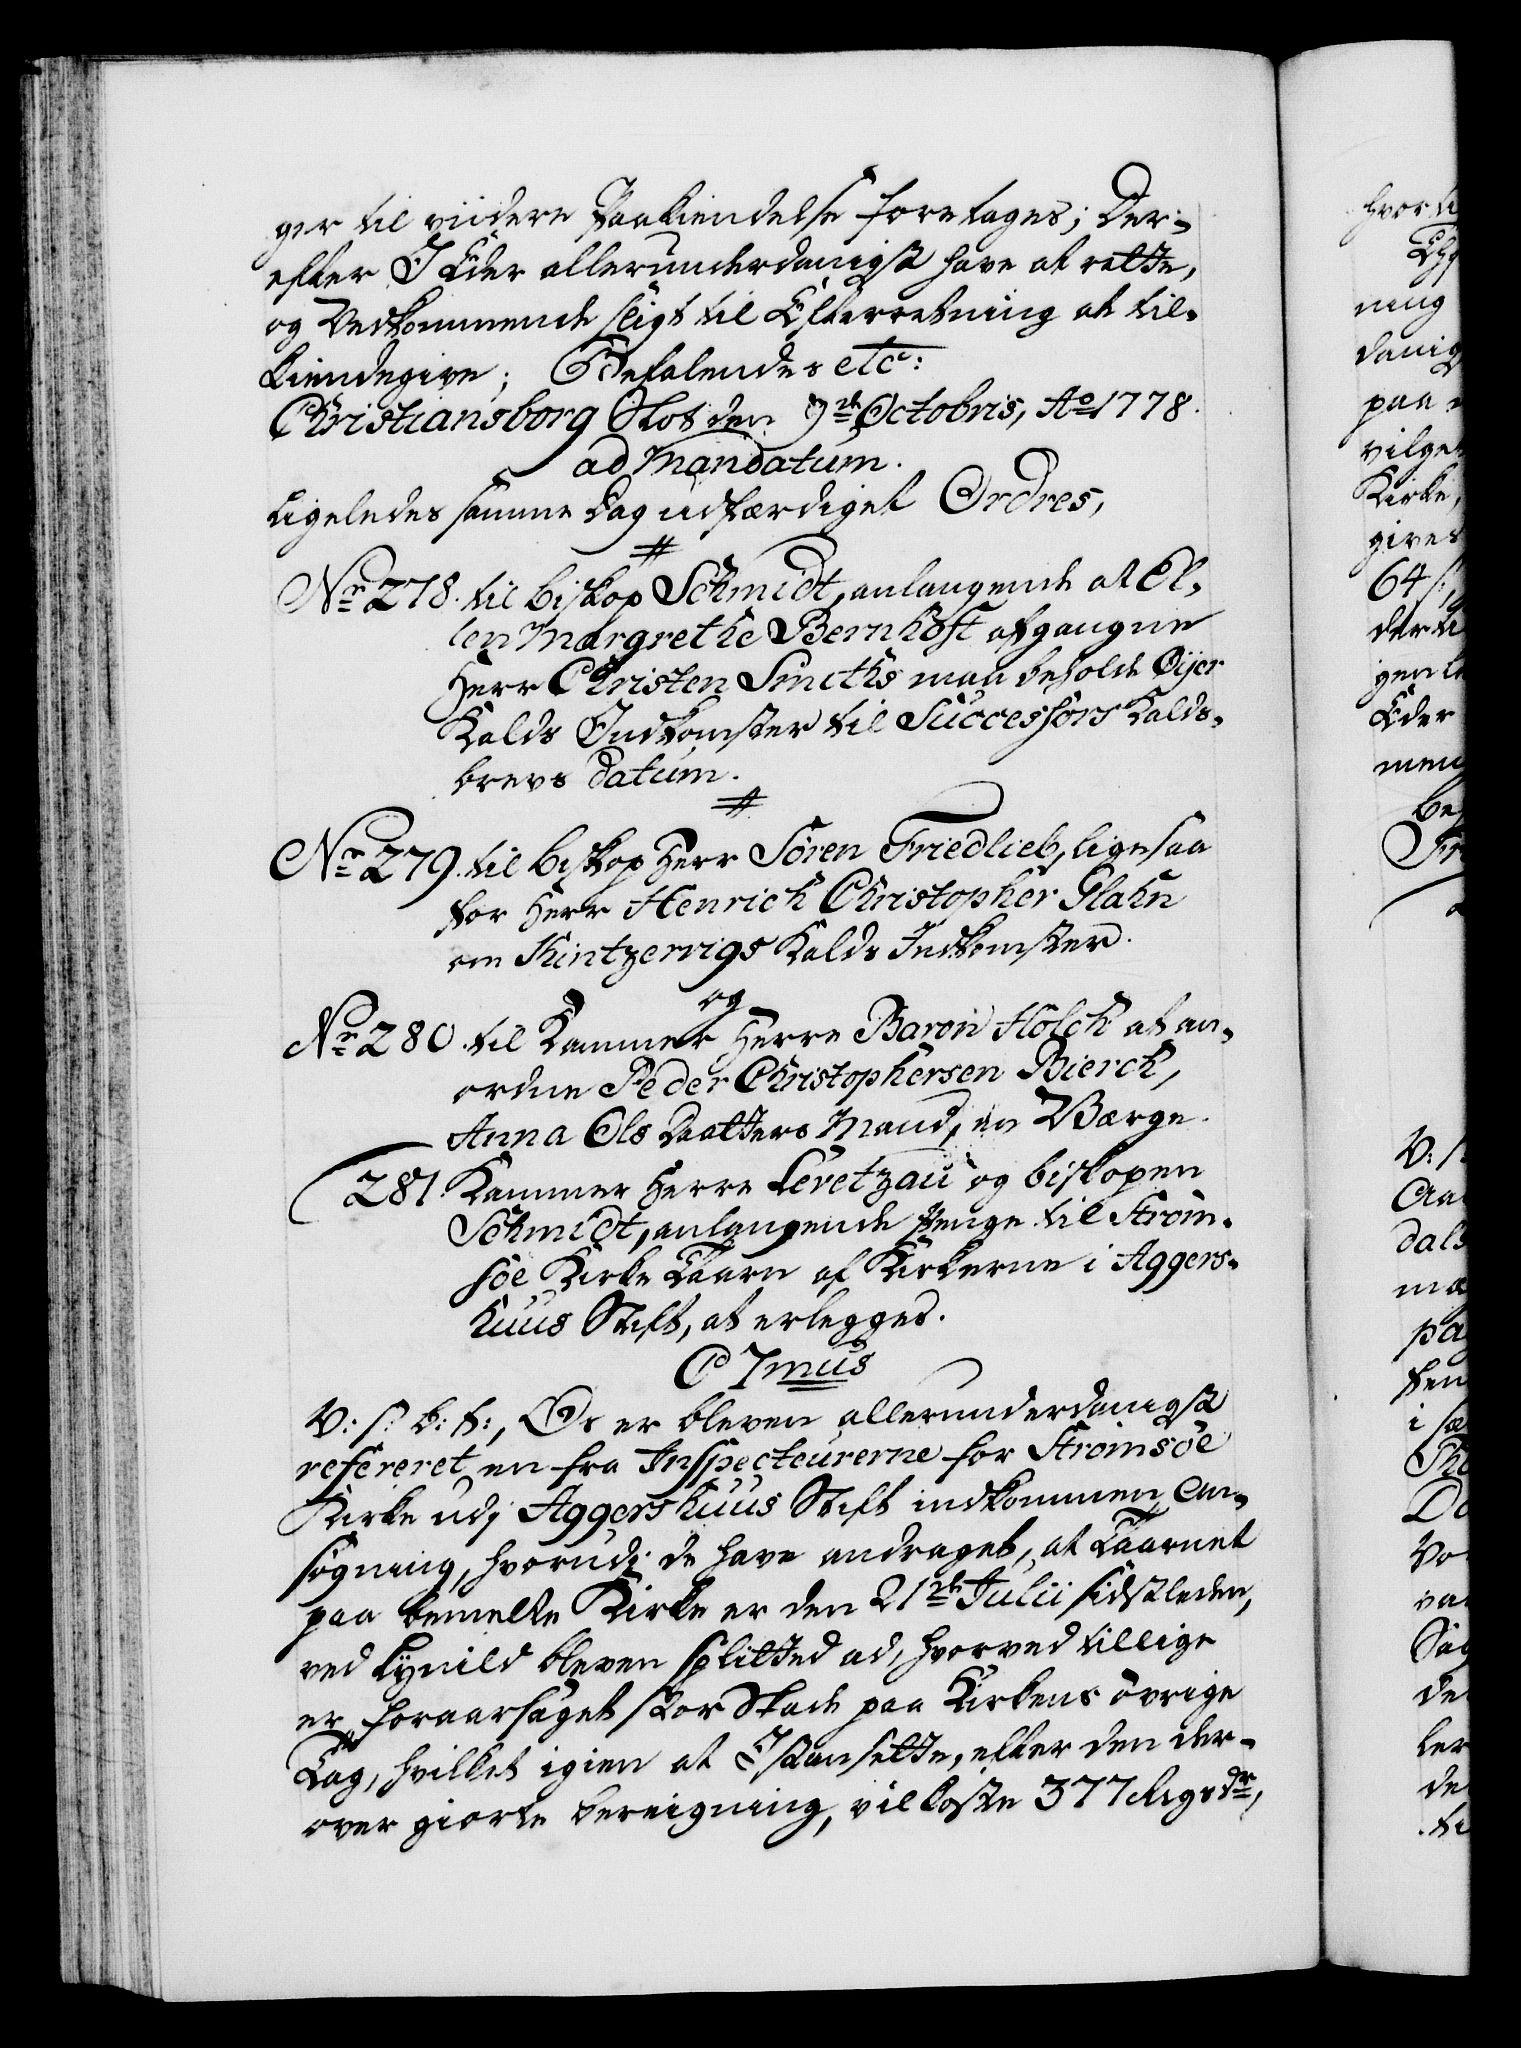 ger til viidere Paakiendelse foretages; Der-
efter I Eder allerunderdanigst have at rette,
og Vedkommende sligt til Efterretning at til-
kiendegive; Befalendes etc:
Christiansborg Slot den 9de Octobris, Ao 1778.
ad Mandatum.
Ligeledes samme Dag udfærdiget Ordres,
Nr 278. til Biskop Schmidt, anlangende at El-
len Margrethe Bernhoft afgangne
Herr Christen Smiths maa beholde Øijer
Kalds Indkomster til Successors Kalds-
brevs datum.
Nr 279. til Biskop Herr Søren Friedlieb, ligesaa
for Herr Henrich Christopher Glahn
om Kintzervigs Kalds Indkomster.
og
Nr 280. til Kammer Herre Baron Holck at an-
ordne Peder Christophersen Bierck,
Anna Ols Daatters Mand, en Værge.
281. Kammer Herre Levetzau og Biskopen
Schmidt, anlangende Penge til Strøm-
søe Kirke Taarn af Kirkerne i Aggers-
huus Stift, at erlegges.
C 7mus
V: s: b: t:, Os er bleven allerunderdanigst
refereret en fra Inspecteurerne for Strømsøe
Kirke udj Aggershuus Stift indkommen An-
søgning, hvorudj de have andraget, at Taarnet
paa bemelte Kirke er den 21de Julii sidstleden,
ved Lynild bleven splitted ad, hvorved tillige
er foraarsaget stor Skade paa Kirkens øvrige
Tag, hvilket igien at Istandsette, efter den der-
over giorte Beregning, vil koste 377 Rigsdr,